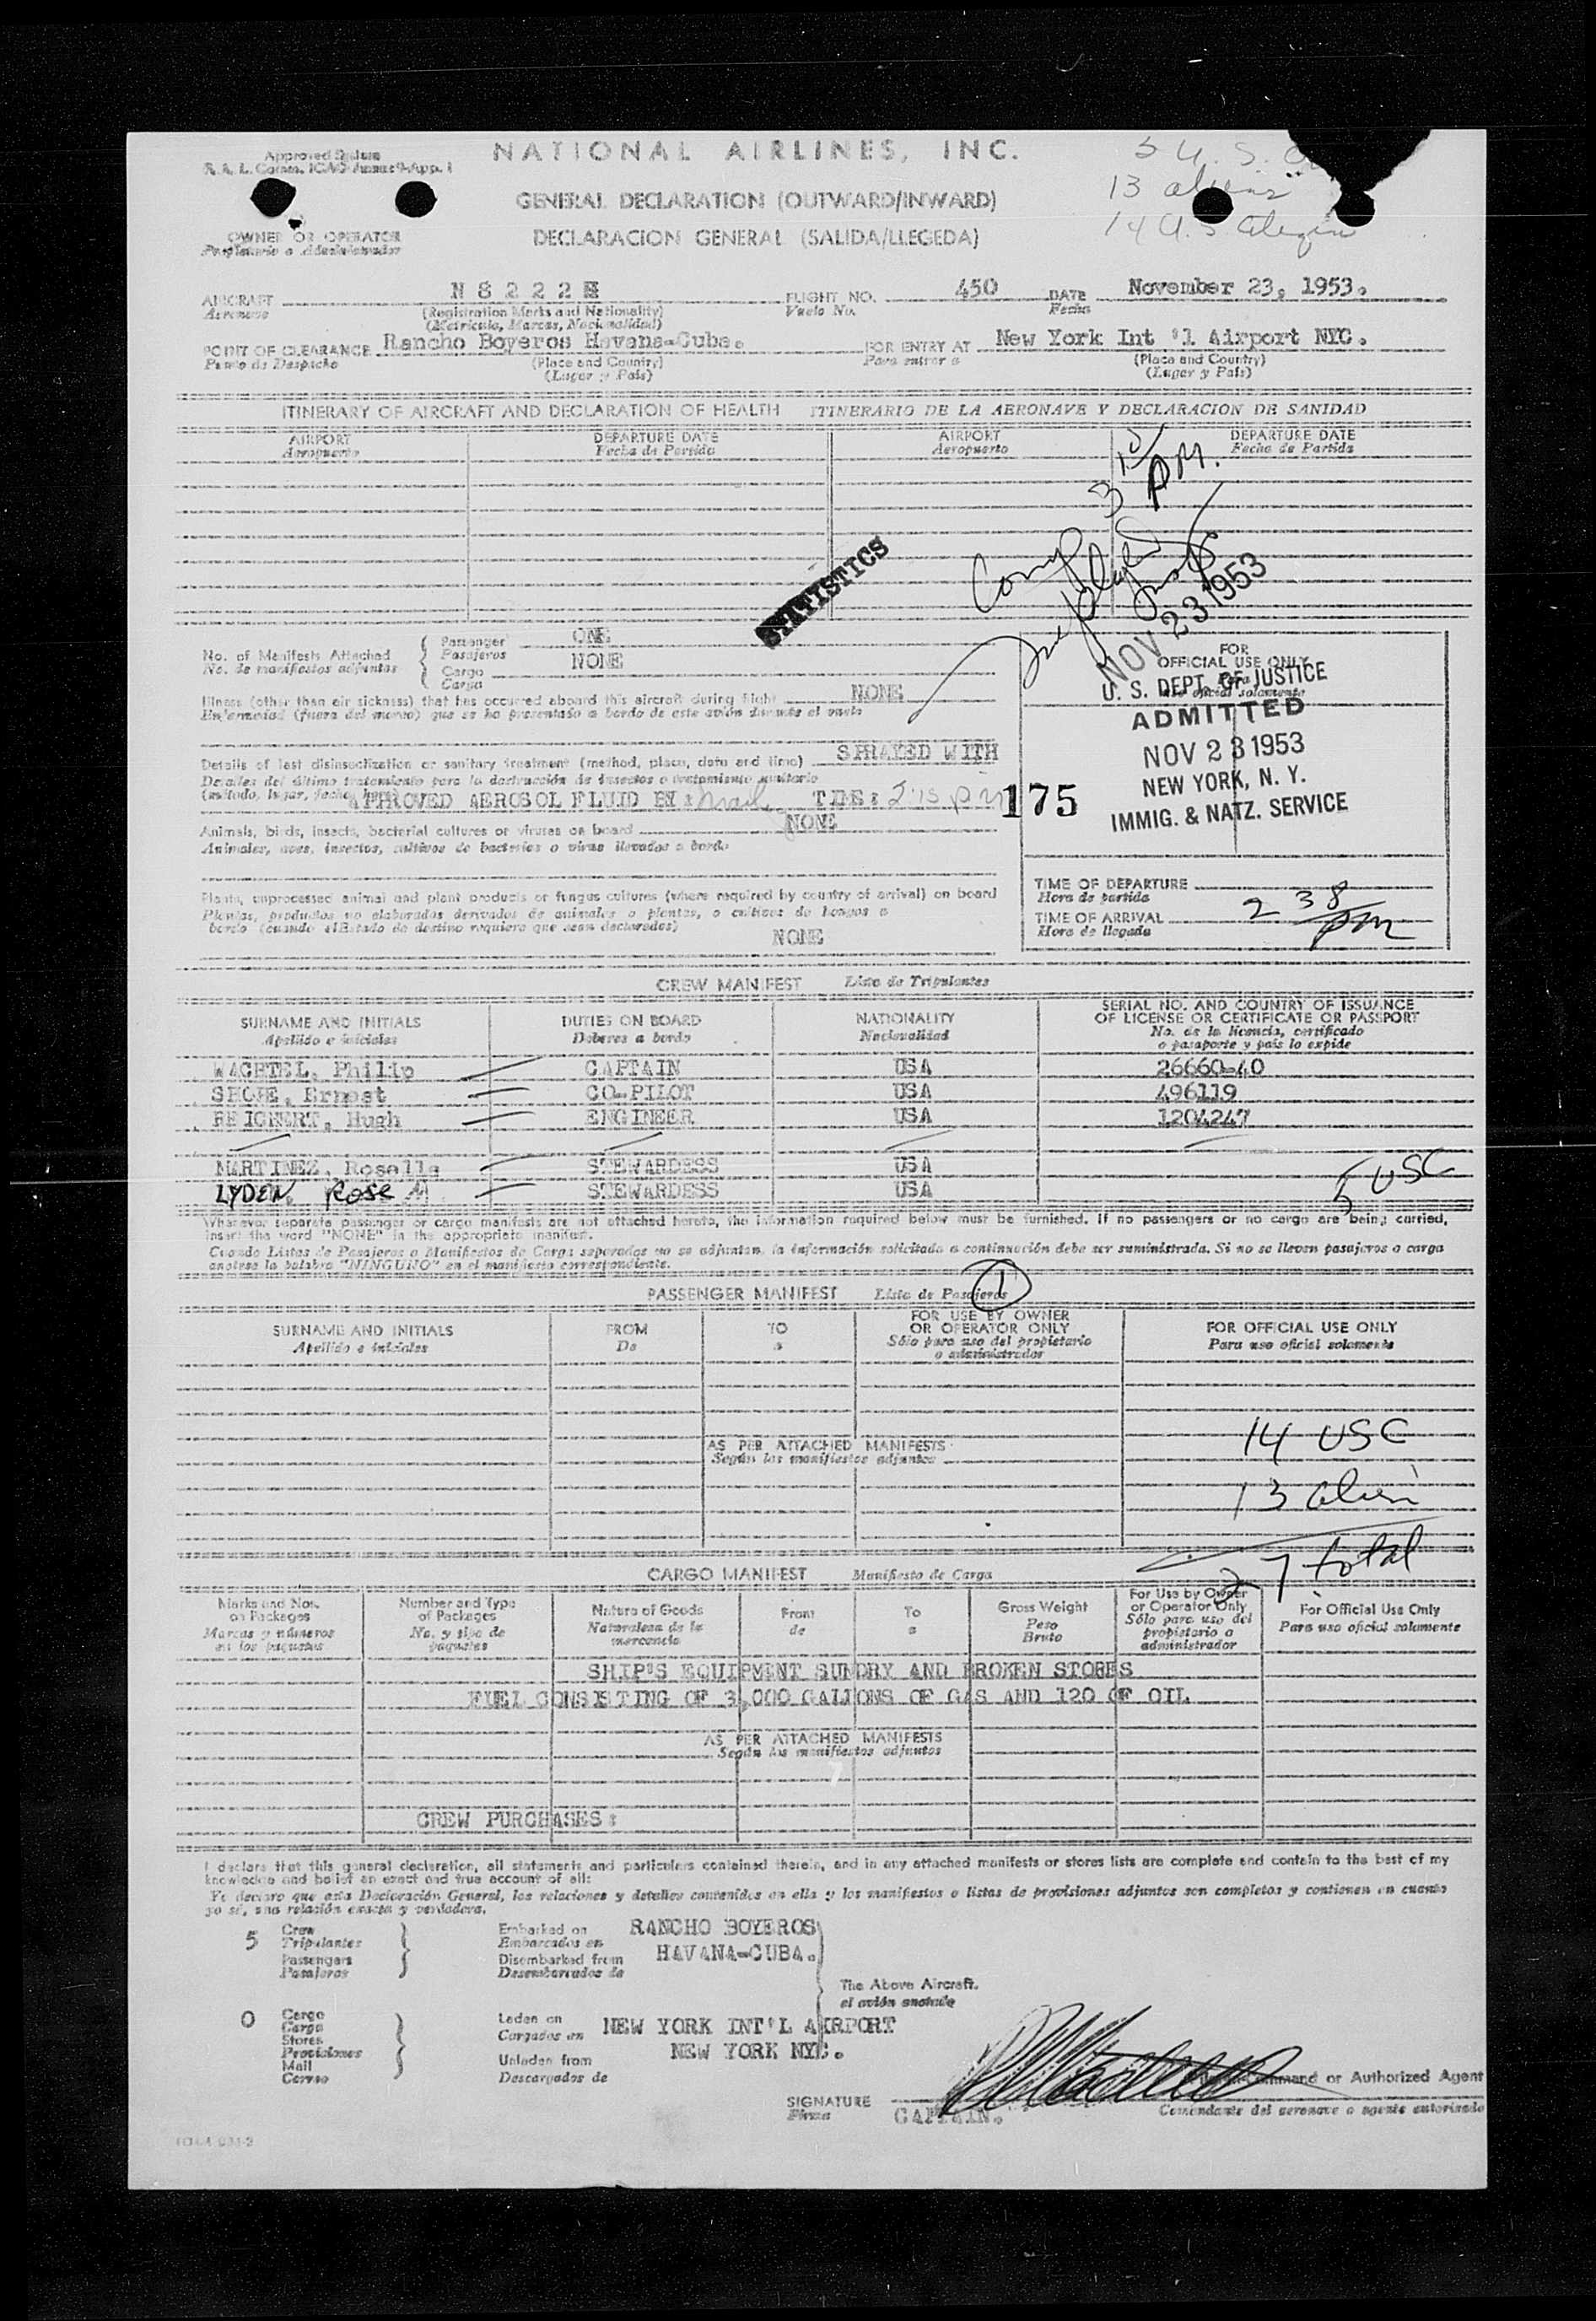 NATIONAL AIRLINES, INC.
GENERAL DECLARATION (OUTWARD/INWARD)
DECLARACION GENERAL (SALIDA/LLEGEDA)
OWNER OR OPERATOR
13 aliens
AIRCRAFT N8222H FLIGHT NO. 450 DATE November 23, 1953.
Aeronave (Registration Marks and Nationality) Vuelo No. Fecha
(Matricula, Marcas, Nacionalidad)
POINT OF CLEARANCE Rancho Boyeros Havana-Cuba. FOR ENTRY AT New York Int'l Airport NYC.
Punto de Despacho (Place and Country) Para entrar a (Place and Country)
(Lugar y Pais) (Lugar y Pais)
ITINERARY OF AIRCRAFT AND DECLARATION OF HEALTH ITINERARIO DE LA AERONAVE Y DECLARACION DE SANIDAD
AIRPORT DEPARTURE DATE AIRPORT DEPARTURE DATE
Aeropuerto Fecha de Partida Aeropuerto Fecha de Partida
3 15 PM.
STATISTICS
NOV 23 1953
No. of Manifests Attached Passenger ONE
No. de manifiestos adjuntos Pasajeros
Cargo NONE
Carga
Illness (other than air sickness) that has occurred aboard this aircraft during flight NONE
Enfermedad (fuera del mareo) que se ha presentado a bordo de este avión durante el vuelo
Details of last disinsectization or sanitary treatment (method, place, date and time) SPRAYED WITH
Detalles del último tratamiento para la destrucción de insectos o tratamiento sanitario
(método, lugar, fecha, hora)
APPROVED AEROSOL FLUID BY: TIME: 2:15 pm
Animals, birds, insects, bacterial cultures or viruses on board NONE
Animales, aves, insectos, cultivos de bacterias o virus llevados a bordo
Plants, unprocessed animal and plant products or fungus cultures (where required by country of arrival) on board
Plantas, productos no elaborados derivados de animales o plantas, o cultivos de hongos a
bordo (cuando el Estado de destino requiere que sean declarados)
NONE
FOR
OFFICIAL USE ONLY
Para
uso oficial solamente
U. S. DEPT. OF JUSTICE
ADMITTED
NOV 23 1953
NEW YORK, N. Y.
IMMIG. & NATZ. SERVICE
175
TIME OF DEPARTURE
Hora de partida
TIME OF ARRIVAL 2 38 pm
Hora de llegada
CREW MANIFEST Lista de Tripulantes
SURNAME AND INITIALS DUTIES ON BOARD NATIONALITY SERIAL NO. AND COUNTRY OF ISSUANCE
OF LICENSE OR CERTIFICATE OR PASSPORT
Apellido e iniciales Deberes a bordo Nacionalidad No. de la licencia, certificado
o pasaporte y pais lo expide
WACHTEL, Philip CAPTAIN USA 26660-40
Ernest CO-PILOT USA 496119
REICHERT, Hugh ENGINEER USA 1204247
MARTINEZ, Rosella STEWARDESS USA
LYDEN, Rose M STEWARDESS USA
5 USC
Whenever separate passenger or cargo manifests are not attached hereto, the information required below must be furnished. If no passengers or no cargo are being carried,
insert the word "NONE" in the appropriate manifest.
Cuando Listas de Pasajeros o Manifiestos de Carga separados no se adjuntan, la información solicitada a continuación debe ser suministrada. Si no se lleven pasajeros o carga
anotese la palabra "NINGUNO" en el manifiesto correspondiente.
PASSENGER MANIFEST Lista de Pasajeros 1
SURNAME AND INITIALS FROM TO FOR USE BY OWNER
OR OPERATOR ONLY FOR OFFICIAL USE ONLY
Apellido e iniciales De a Sólo para uso del propietario
o administrador Para uso oficial solamente
AS PER ATTACHED MANIFESTS
Según los manifiestos adjuntos
14 USC
13 alien
27 total
CARGO MANIFEST Manifiesto de Carga
Marks and Nos. on Packages Number and Type of Packages Nature of Goods From To Gross Weight For Use by Owner or Operator Only For Official Use Only
Marcas y números en los paquetes No. y tipo de paquetes Naturaleza de la mercancia de a Peso Bruto Sólo para uso del propietario o administrador Para uso oficial solamente
SHIP'S EQUIPMENT SUNDRY AND BROKEN STORES
FUEL CONSISTING OF 3,000 GALLONS OF GAS AND 120 OF OIL
AS PER ATTACHED MANIFESTS
Según los manifiestos adjuntos
CREW PURCHASES:
I declare that this general declaration, all statements and particulars contained therein, and in any attached manifests or stores lists are complete and contain to the best of my
knowledge and belief an exact and true account of all:
Yo declaro que esta Declaración General, las relaciones y detalles contenidos en ella y los manifiestos o listas de provisiones adjuntos son completos y contienen en cuanto
yo sé, una relación exacta y verdadera.
5 Crew Embarked on RANCHO BOYEROS
Tripulantes Embarcados en
Passengers Disembarked from HAVANA-CUBA.
Pasajeros Desembarcados de
The Above Aircraft.
el avión anotado
0 Cargo Laden on NEW YORK INT'L AIRPORT
Carga Cargados en
Stores
Provisiones
Mail Unladen from NEW YORK NYC.
Correo Descargados de
SIGNATURE
Firma CAPTAIN.
Command or Authorized Agent
Comandante del aeronave o agente autorizado